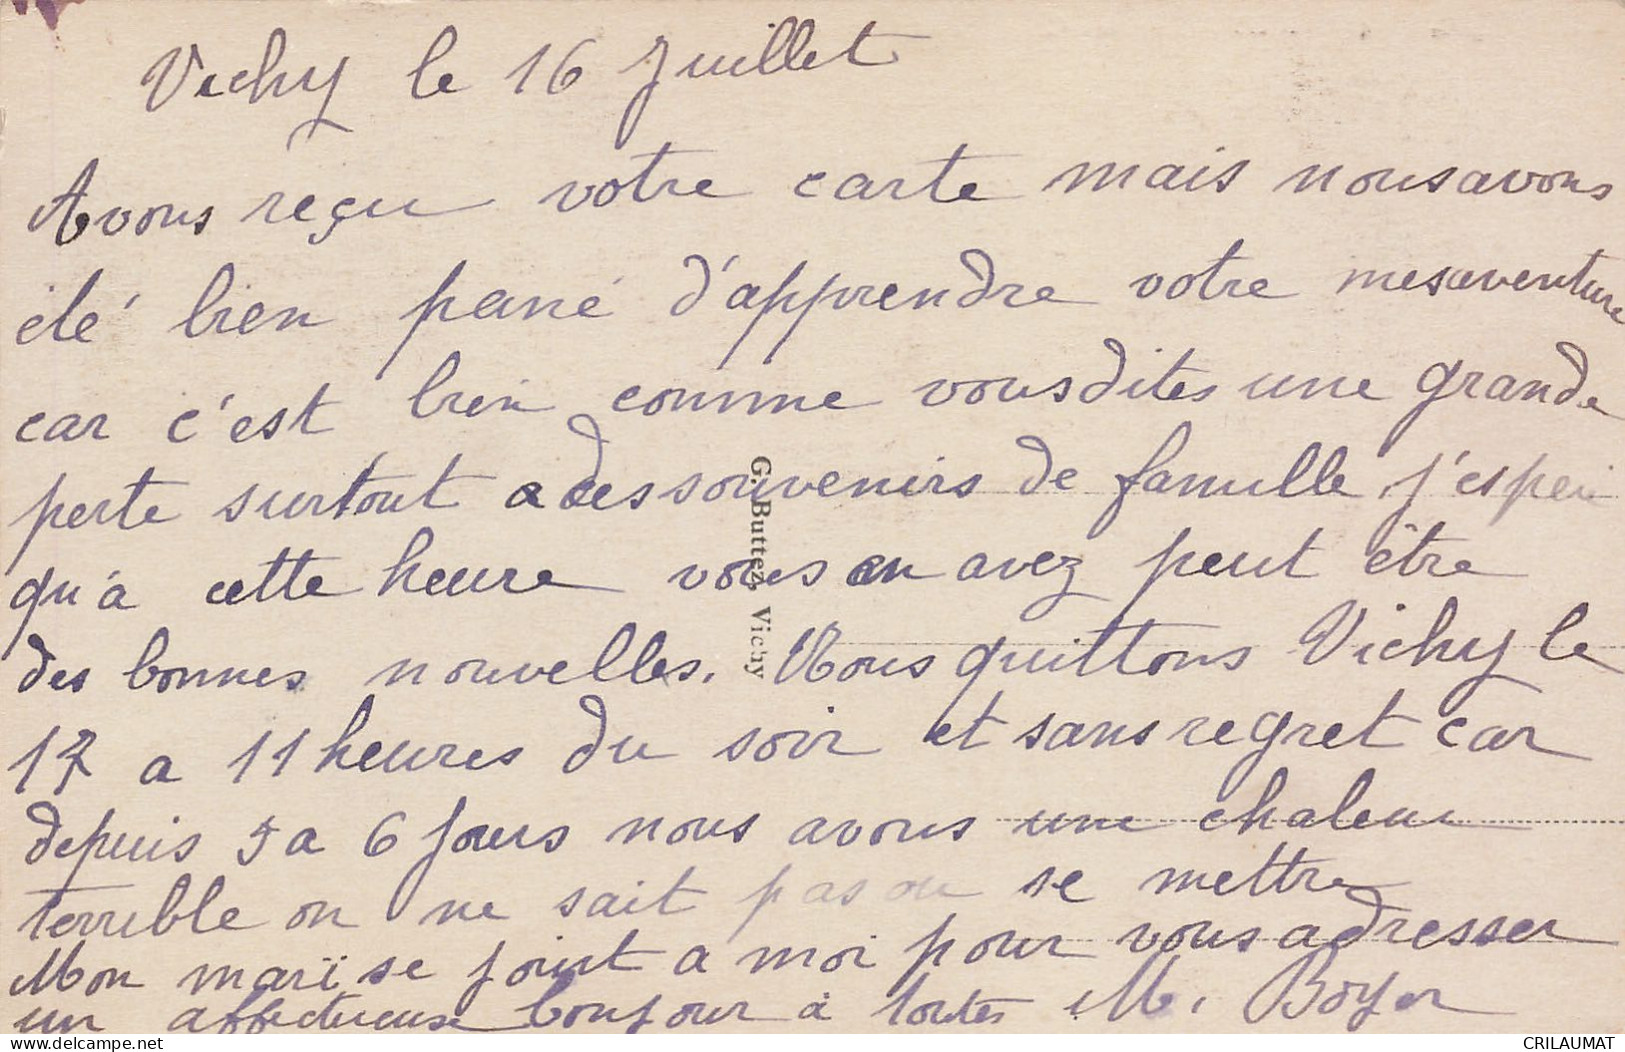 Vichy le 16 Juillet
Avons reçu votre carte mais nous avons
été bien peiné d'apprendre votre mesaventure
car c'est bien comme vous dites une grande
perte surtout a des souvenirs de famille, j'espère
qu'à cette heure vous en avez peut être
des bonnes nouvelles. Nous quittons Vichy le
17 a 11 heures du soir et sans regret car
depuis 5 a 6 jours nous avons une chaleur
terrible on ne sait pas ou se mettre
Mon mari se joint a moi pour vous adresser
un affectueuse bonjour à toutes M. Boyer
G. Buttez, Vichy
delcampe.net
CRILAUMAT